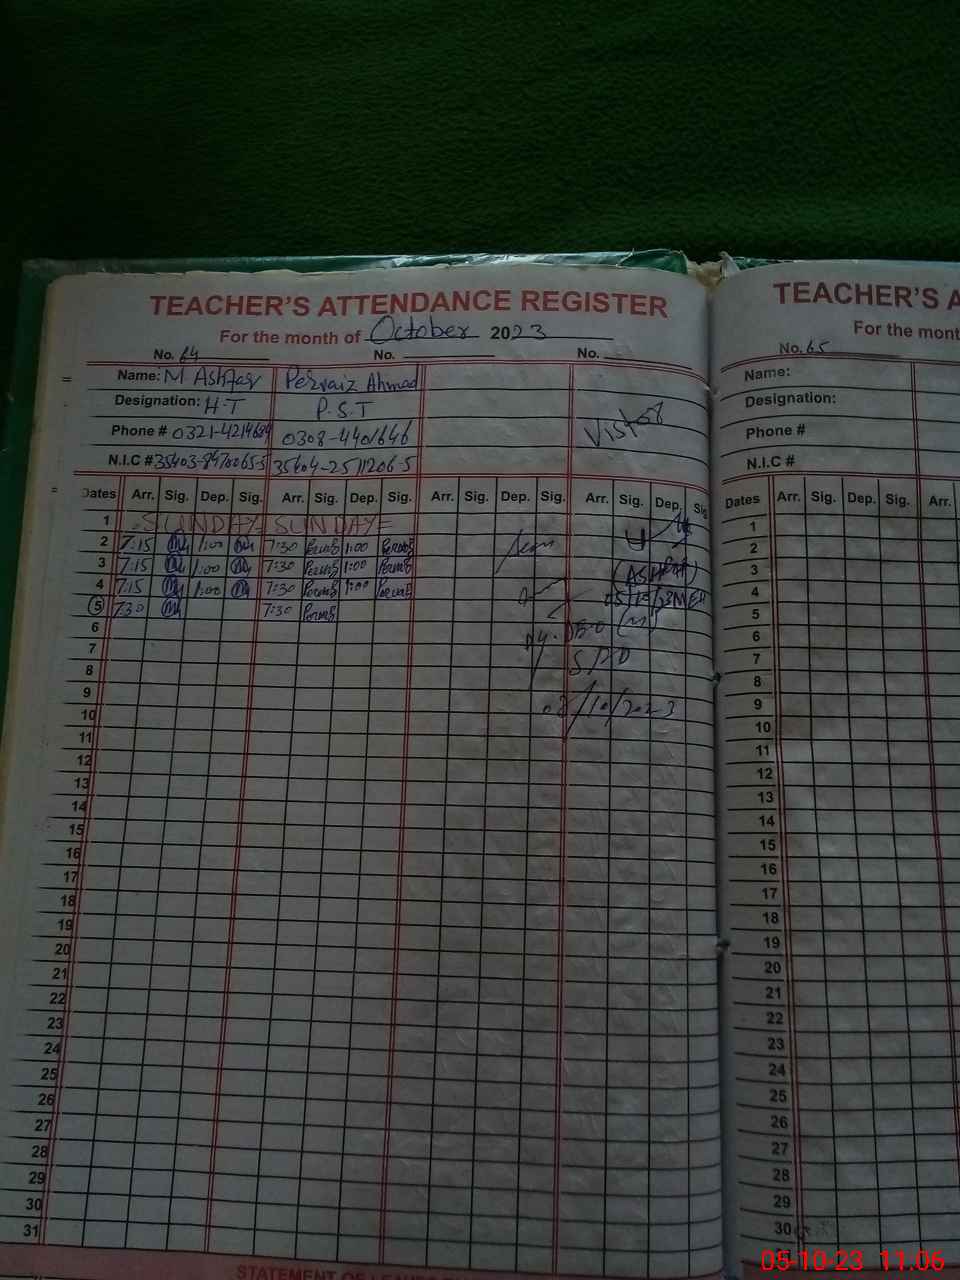 TEACHER'S ATTENDANCE REGISTER
For the month of October 2023
No. 64 No. No.
Name: M Ashfaq Pervaiz Ahmad
Designation: H.T P.S.T
Phone # 0308-4401646 Visitor
N.I.C # 35404-2511206-5
Dates Arr. Sig. Dep. Sig. Arr. Sig. Dep. Sig. Arr. Sig. Dep. Sig. Arr. Sig. Dep. Sig
1 SUNDAY SUNDAY
2 7:15 1:00 7:30 Pervaiz 1:00 Pervaiz
3 7:15 1:00 7:30 Pervaiz 1:00 Pervaiz
4 7:15 1:00 7:30 Pervaiz 1:00 Pervaiz
5 7:30 7:30 Pervaiz
6
7
8
9
10
11
12
13
14
15
16
17
18
19
20
21
22
23
24
25
26
27
28
29
30
31
TEACHER'S A
For the mont
No. 65
Name:
Designation:
Phone #
N.I.C #
Dates Arr. Sig. Dep. Sig. Arr.
1
2
3
4
5
6
7
8
9
10
11
12
13
14
15
16
17
18
19
20
21
22
23
24
25
26
27
28
29
30
05-10-23 11:06